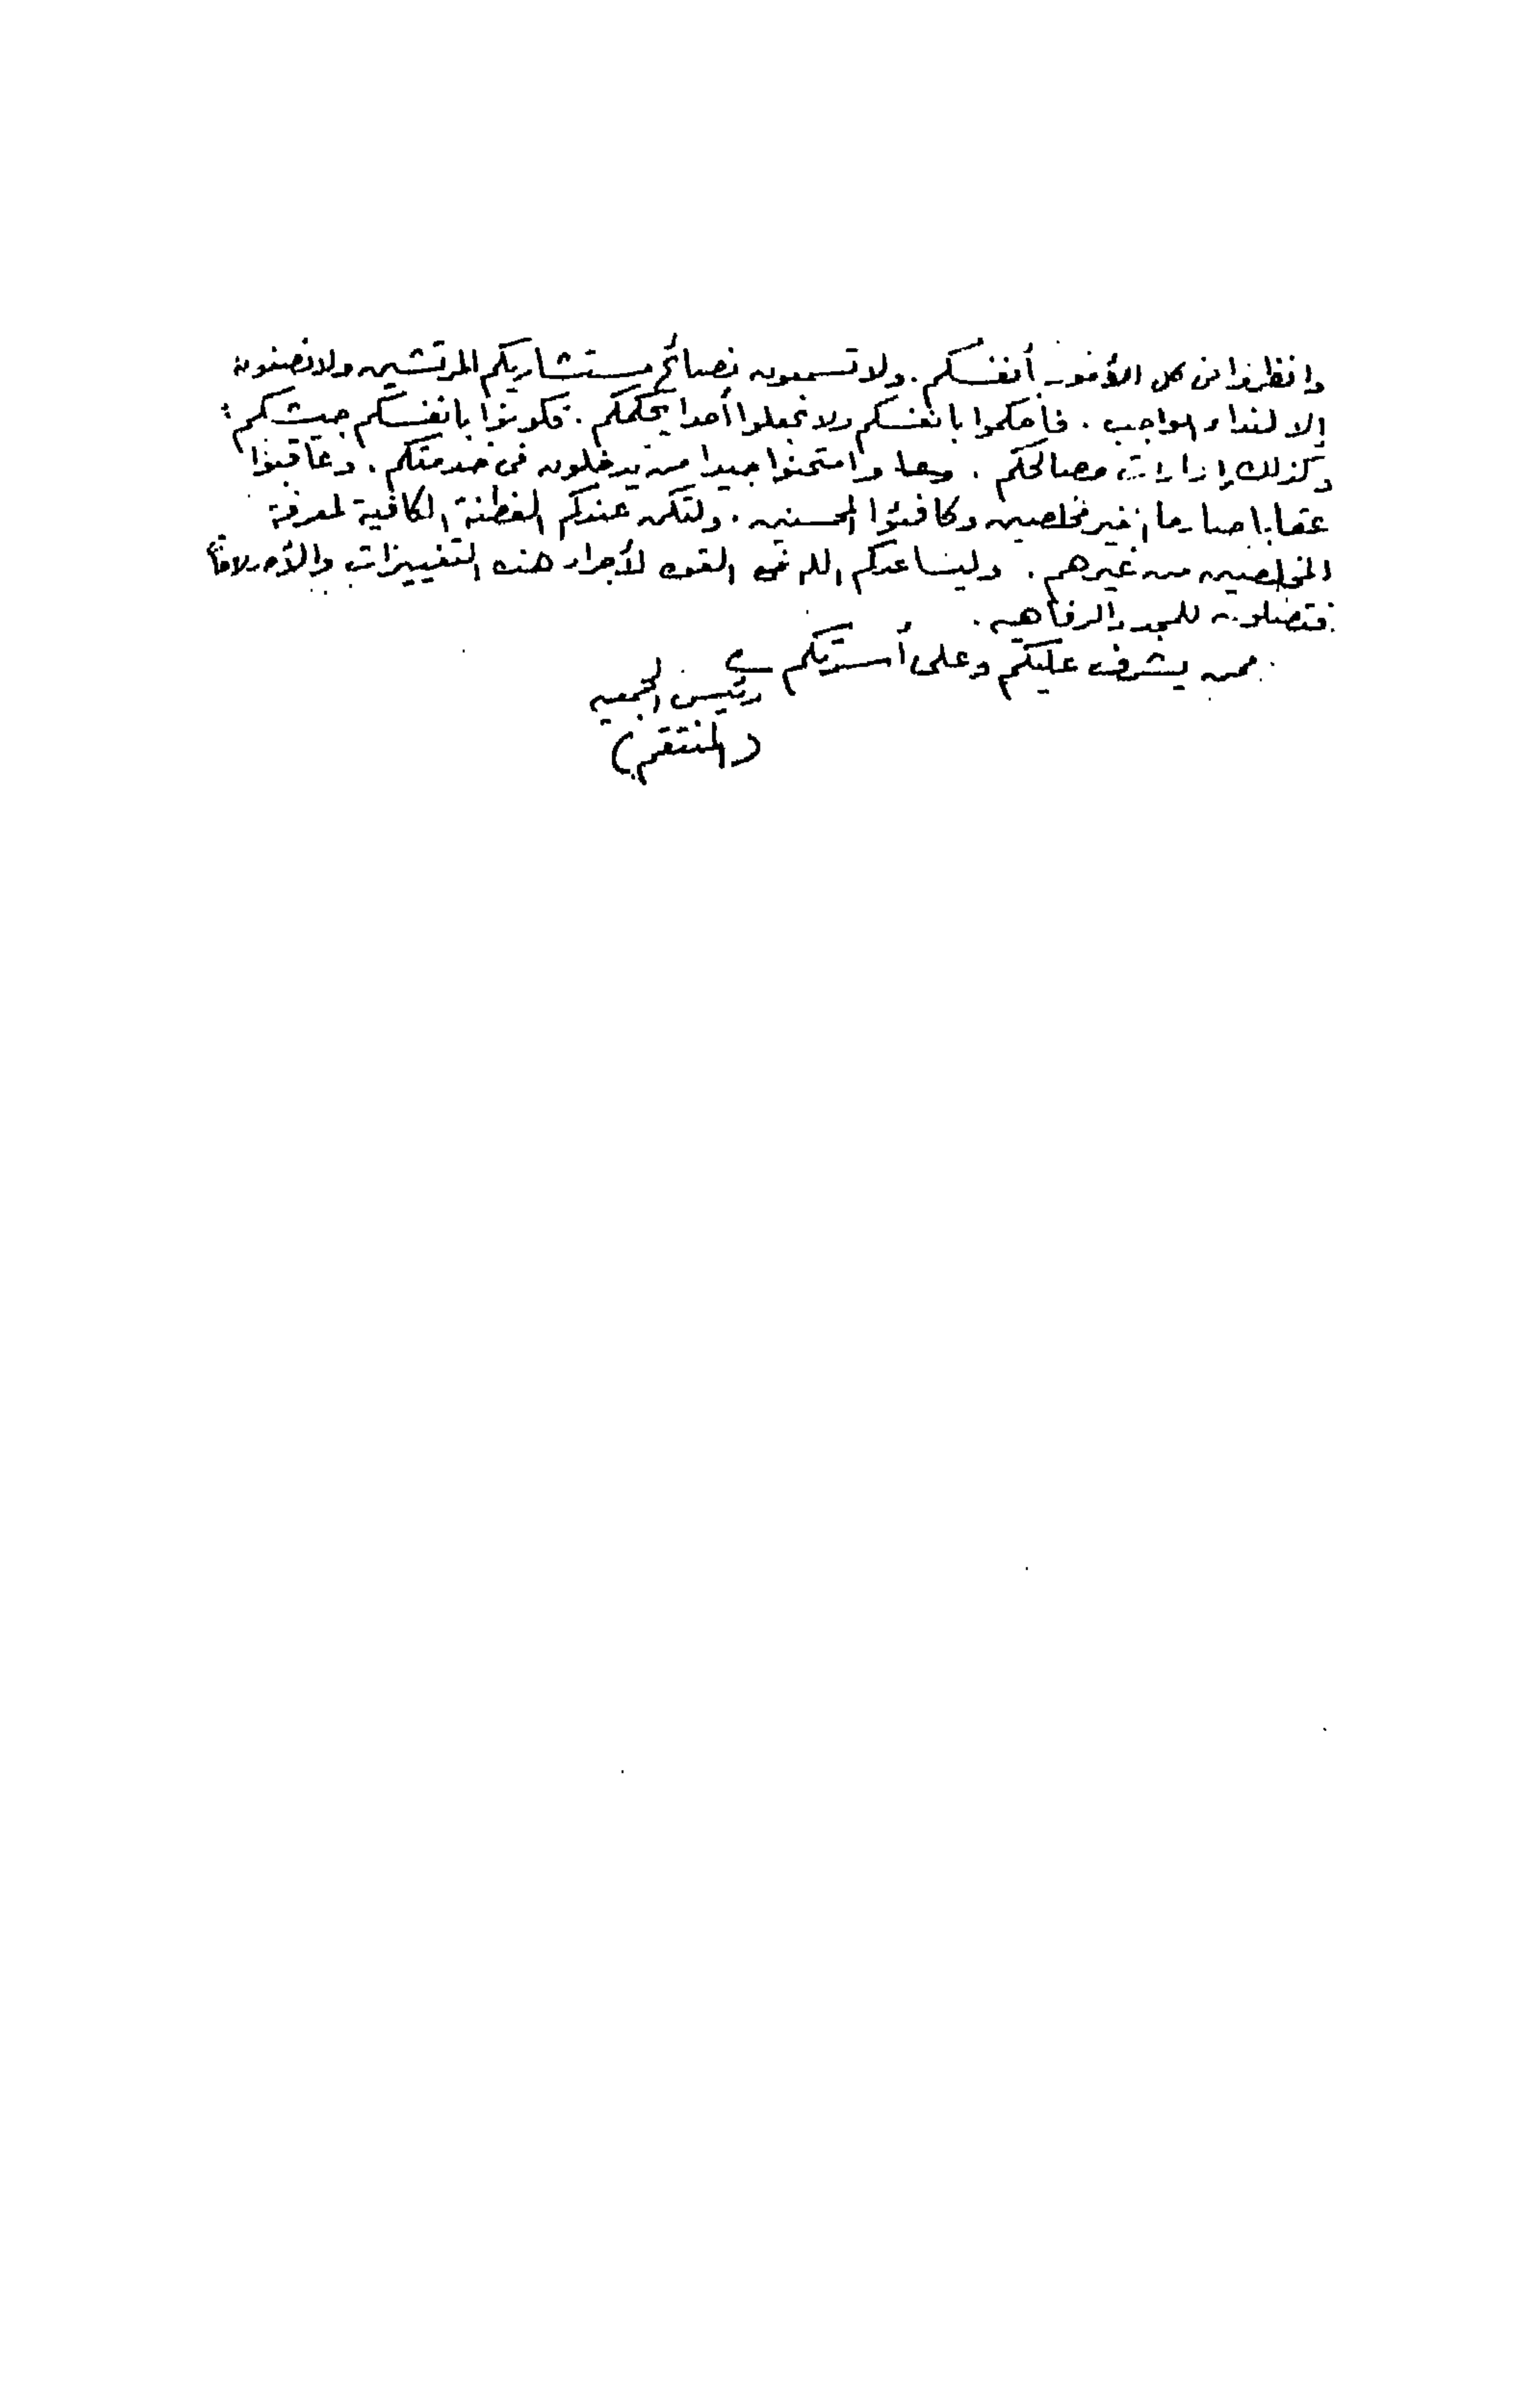 وانظروا فى كل الأمور بأنفسكم . ولا تسمعون نصائح مستشاريكم المرتشين ولا تصغون
إلا لنداء الواجب . فأحكموا بانفسكم ولا تجعلوا أحدا يحكمكم . فكونوا بانفسكم جيشكم
وكذلك إدارات مصالحكم . وامتحنوا جيدا من يدخلون فى خدمتكم . وعاقبوا
عقابا صارما الغير مخلصين وكافئوا المحسنين . ولتكن عندكم الفطنة الكافية لمعرفة
المخلصين من غيرهم . وليساعدكم الله فى القوه لأجراء هذه التغييرات
فتصلون للمجد والرفاهيه .
ممن يشرف عليكم وعلى أسرتكم
رئيس الجمعيه
(المنتقم)